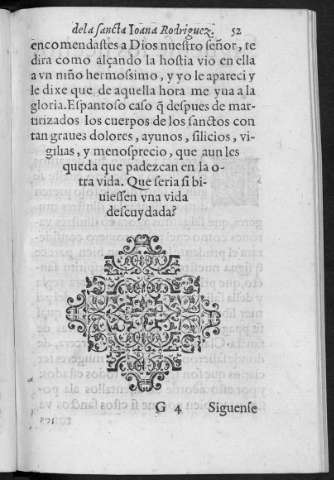 dela sancta Ioana Rodriguez. 52
encomendastes a Dios nuestro señor, te
dira como alçando la hostia vio en ella
a vn niño hermosissimo, y yo le apareci y
le dixe que de aquella hora me yua a la
gloria. Espantoso caso q̃ despues de mar-
tirizados los cuerpos de los sanctos con
tan graues dolores, ayunos, silicios, vi-
gilias, y menosprecio, que aun les
queda que padezcan en la o-
tra vida. Que seria si bi-
uiessen vna vida
descuydada?
G 4 Siguense